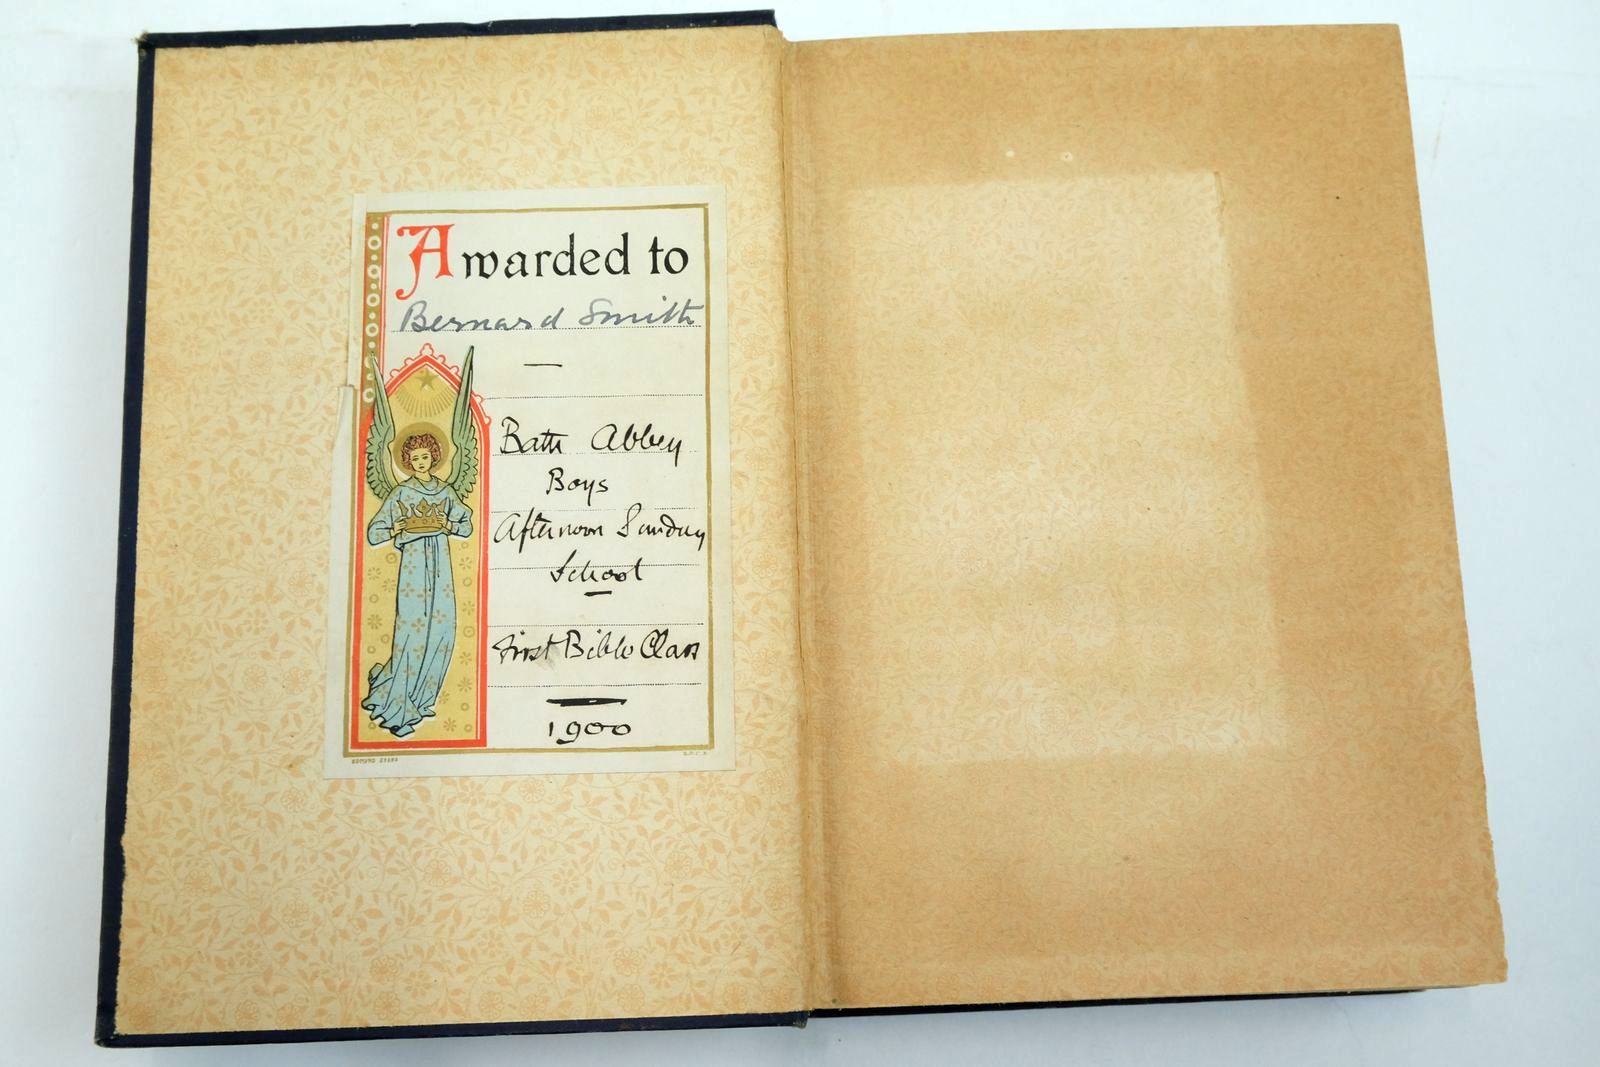 Awarded to
Bernard Smith
—
Bath Abbey
Boys
Afternoon Sunday
School
First Bible Class
1900